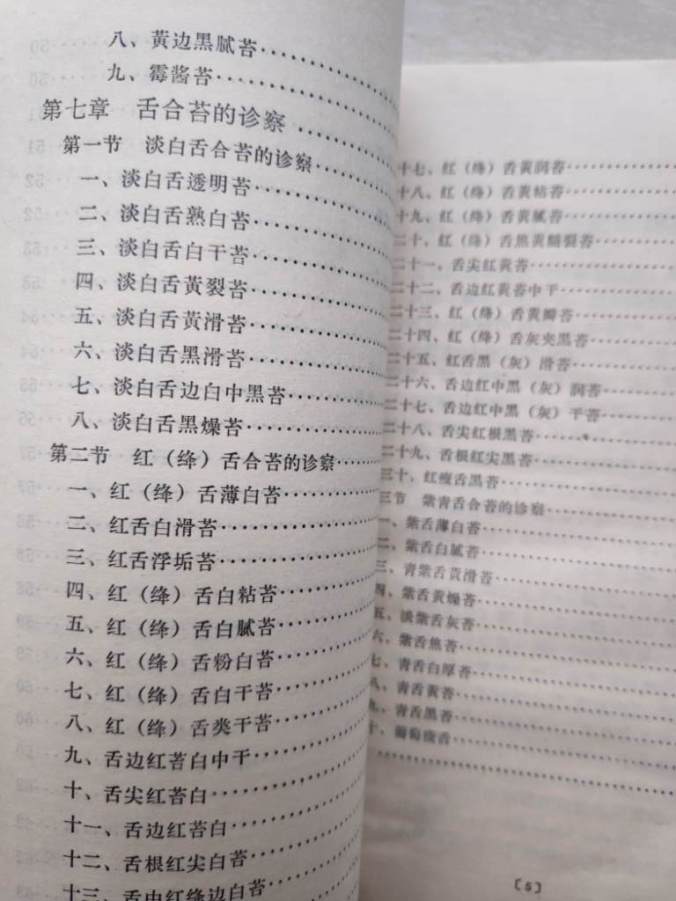 八、黄边黑腻苔
九、霉酱苔
第七章 舌合苔的诊察
第一节 淡白舌合苔的诊察
一、淡白舌透明苔
二、淡白舌熟白苔
三、淡白舌白干苔
四、淡白舌黄裂苔
五、淡白舌黄滑苔
六、淡白舌黑滑苔
七、淡白舌边白中黑苔
八、淡白舌黑燥苔
第二节 红（绛）舌合苔的诊察
一、红（绛）舌薄白苔
二、红舌白滑苔
三、红舌浮垢苔
四、红（绛）舌白粘苔
五、红（绛）舌白腻苔
六、红（绛）舌粉白苔
七、红（绛）舌白干苔
八、红（绛）舌类干苔
九、舌边红苔白中干
十、舌尖红苔白
十一、舌边红苔白
十二、舌根红尖白苔
十三、舌中红绛边白苔
十七、红（绛）舌黄润苔
十八、红（绛）舌黄粘苔
十九、红（绛）舌黄腻苔
二十、红（绛）舌焦黄裂苔
二十一、舌尖红黄苔
二十二、舌边红黄苔中干
二十三、红（绛）舌黄瓣苔
二十四、红（绛）舌灰夹黑苔
二十五、红舌黑（灰）滑苔
二十六、舌边红中黑（灰）润苔
二十七、舌边红中黑（灰）干苔
二十八、舌尖红根黑苔
二十九、舌根红尖黑苔
三十、红瘦舌黑苔
三节 紫青舌合苔的诊察
一、紫舌薄白苔
二、紫舌白腻苔
三、青紫舌黄滑苔
四、紫舌黄燥苔
五、淡紫舌灰苔
六、紫舌焦苔
七、青舌白厚苔
八、青舌黄苔
九、青舌黑苔
十、葡萄疫舌
〔5〕